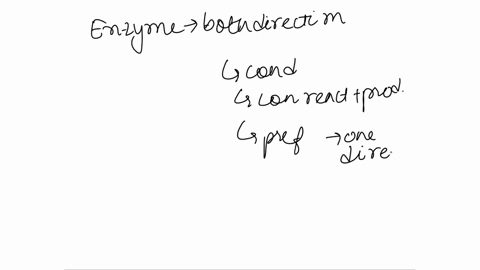 Enzyme→both direction
↳cond
↳con react+prod.
↳pref →one
dire.